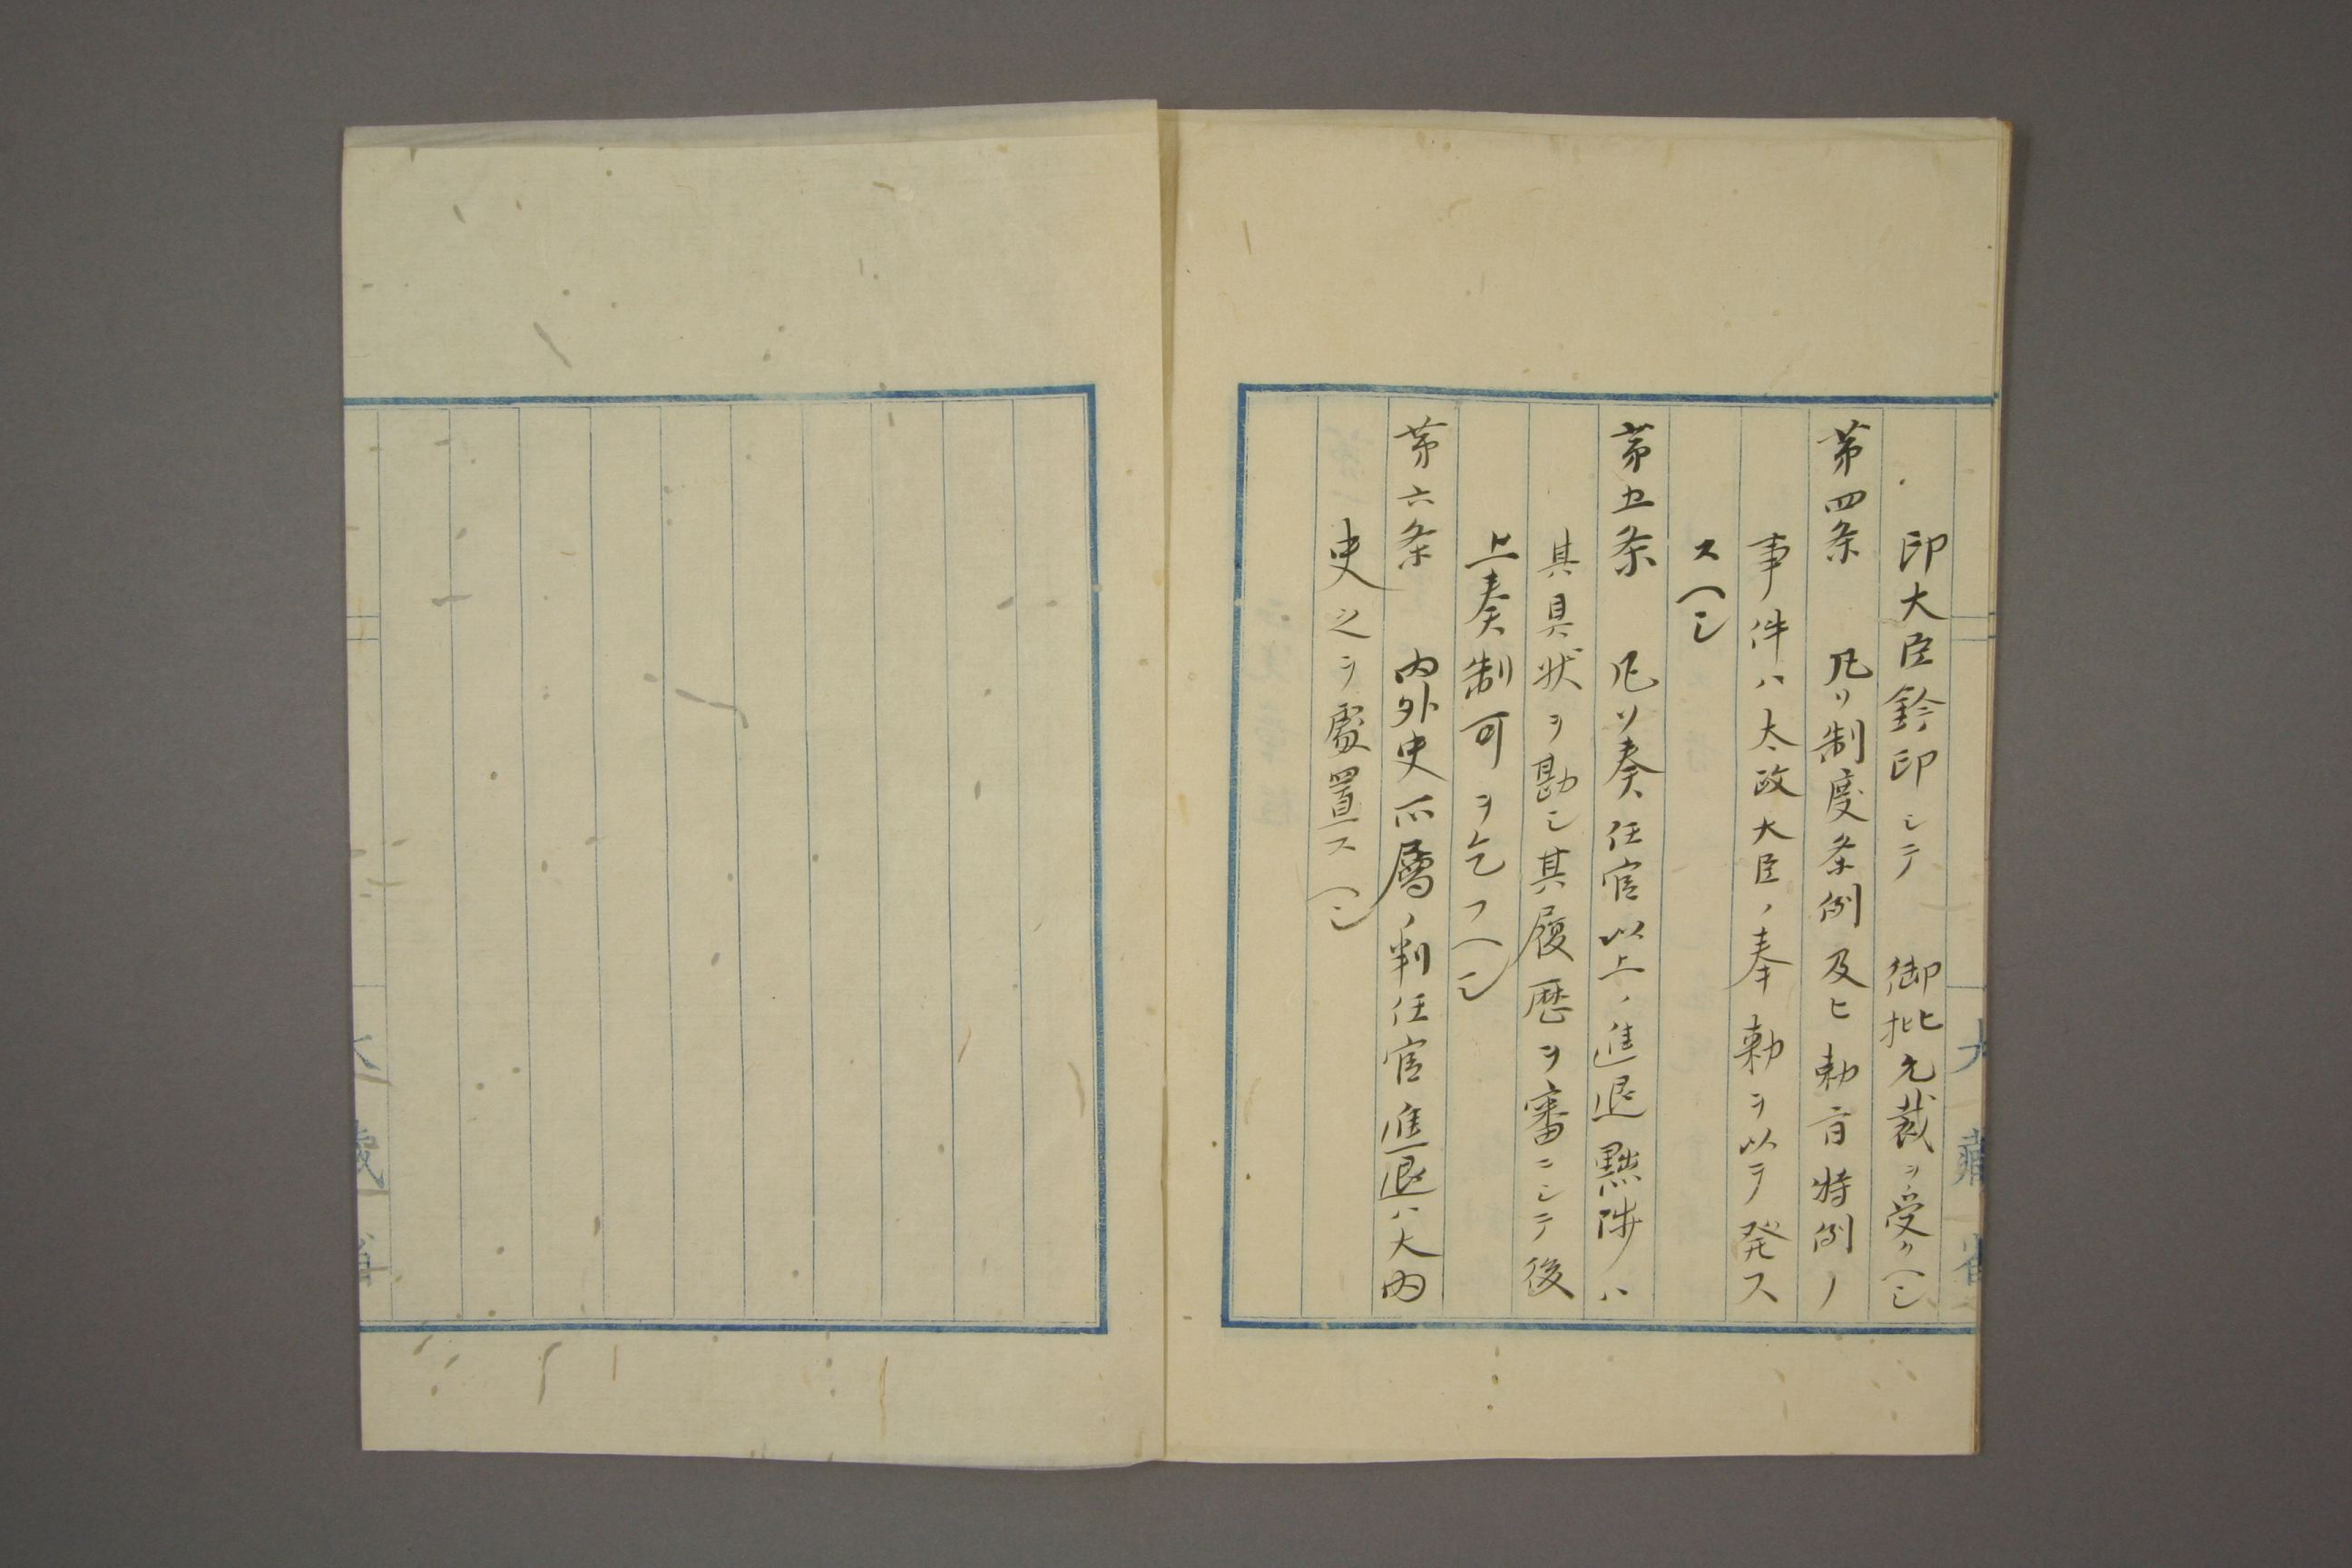 印大臣鈐印シテ　御批允裁ヲ受クヘシ
第四条　凡ソ制度条例及ヒ勅旨特例ノ
事件ハ太政大臣ノ奉勅ヲ以テ発ス
スヘシ
第五条　凡ソ奏任官以上ノ進退黜陟ハ
其具状ヲ勘シ其履歴ヲ審ニシテ後
上奏制可ヲ乞フヘシ
第六条　内外史所属ノ判任官進退ハ大内
史之ヲ處置スヘシ
大藏省